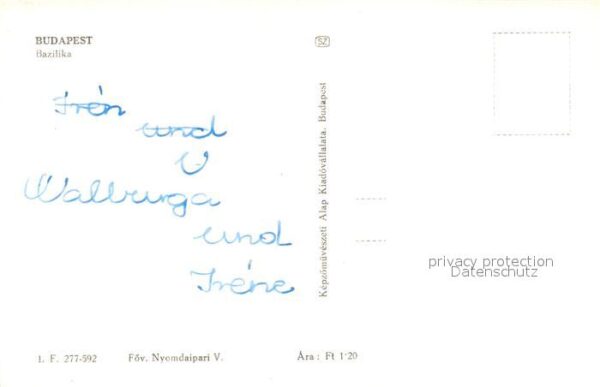 BUDAPEST
Bazilika
Irén
und
U
Walburga
und
Iréne
SZ
Képzőművészeti Alap Kiadóvállalata, Budapest
privacy protection
Datenschutz
1. F. 277-592 Főv. Nyomdaipari V. Ára: Ft 1·20